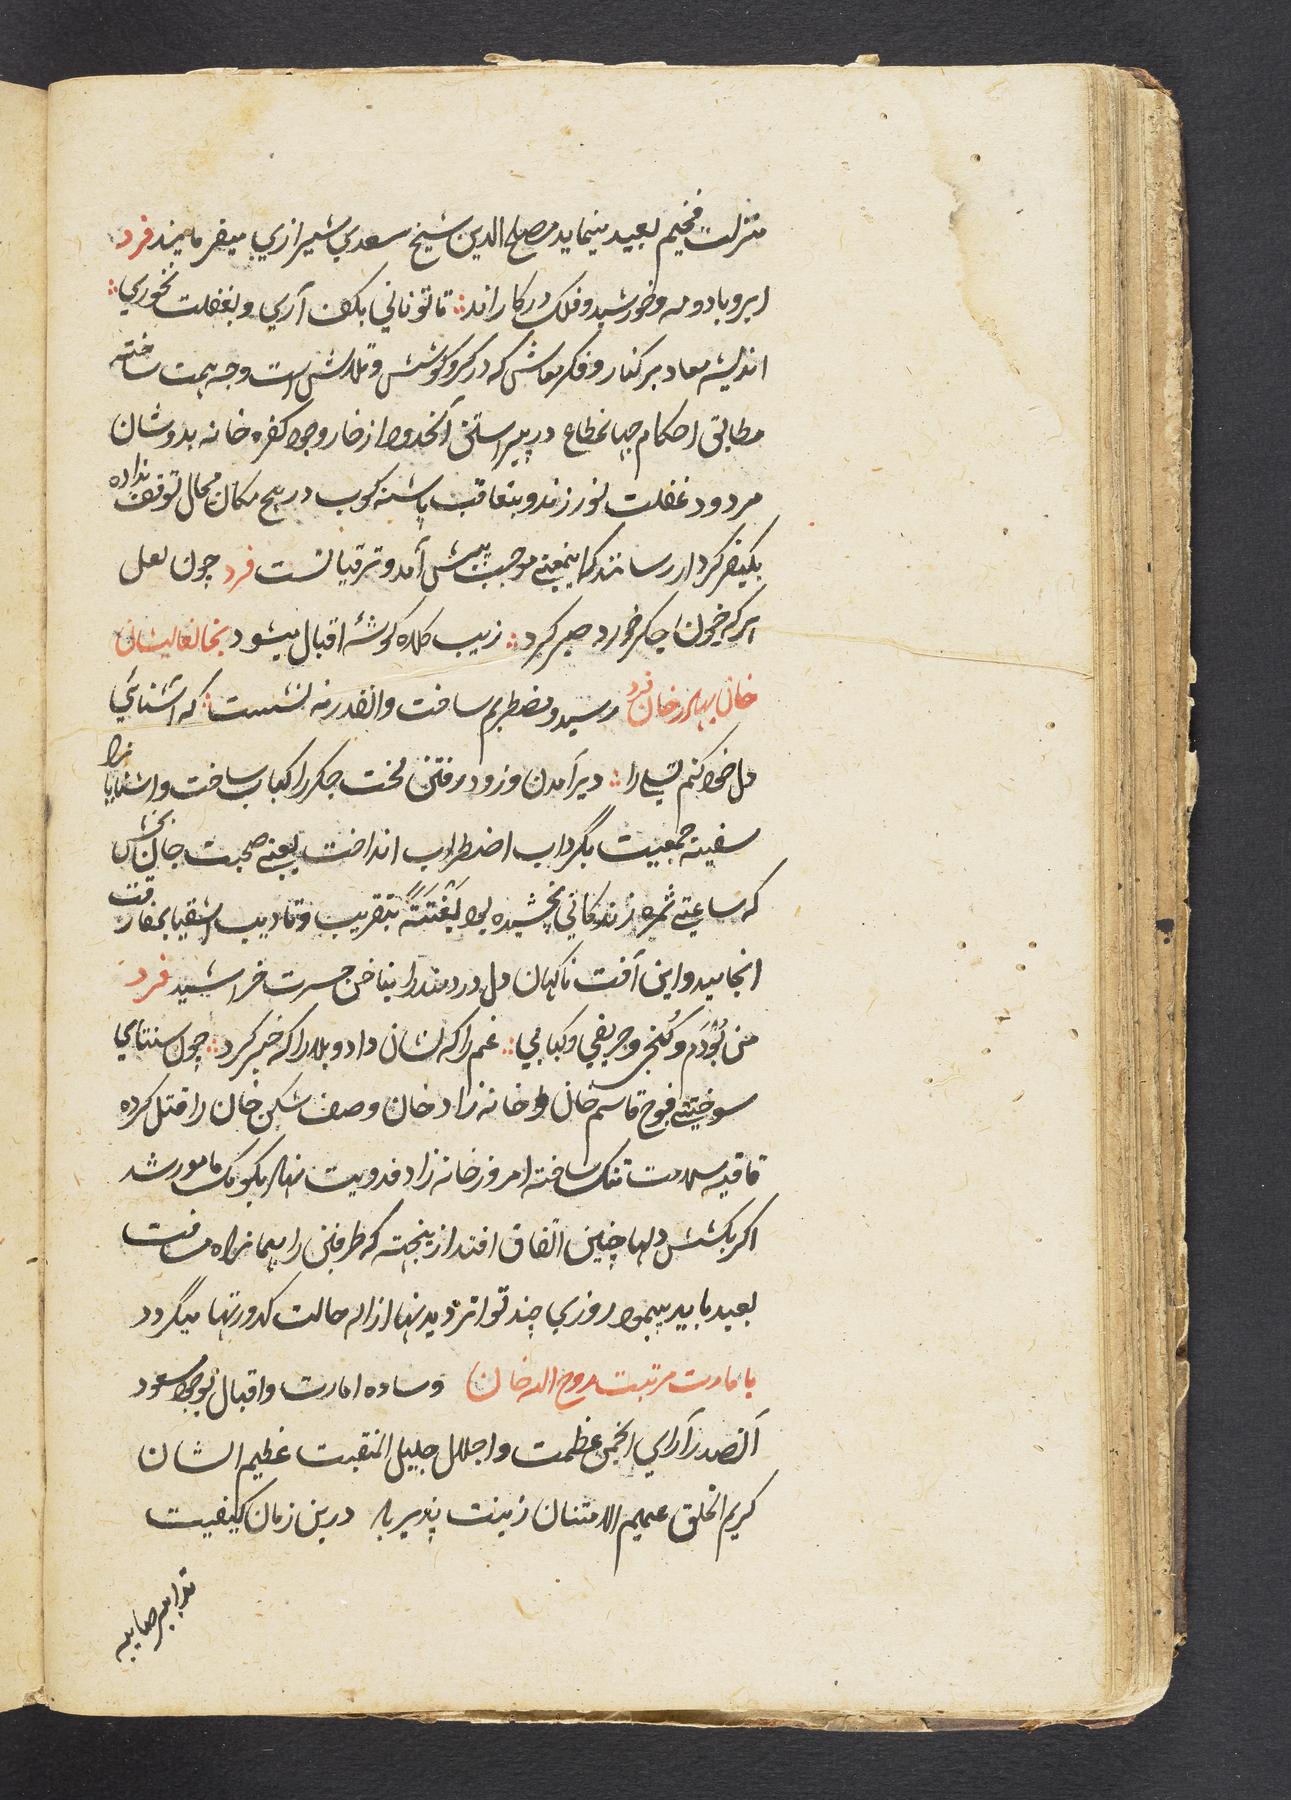 منزلت فخیم بعید مینماید مصلح الدین شیخ سعدی شیرازی میفرمایند فرد
ابر و باد و مه و خورشید و فلک در کار اند ؞ تا تو نانی بکف آری و بغفلت نخوری ؞
اندیشه معاد بر کنار و فکر معاش که در کر و کوشش و تلاش است وجه همت ساخته
مطابق احکام جهانمطاع در پیراستن آنحدود از خار وجود کفره خانه بدوشان
مردود غفلت نورزند و بتعاقب پاشنه کوب در هیچ مکان مجال توقف نداده
بکیفر کردار رسانند که اینمعنی موجب پیش آمد و ترقیاتست فرد چون لعل
هر که خون جگر خورد صبر کرد ؞ زیب کلاه گوشهٔ اقبال میشود بخانعالیشان
خان بهادر خان فرد رسید و مضطربم ساخت وانقدر نه نشست ؞ که آشنائی
دل خود کنم تسلی را ؞ دیر آمدن و زود رفتن لخت جکر را کباب ساخت و
سفینه جمعیت بگرداب اضطراب انداخت یعنی صحبت جان بخش
که ساعتی ثمره زندکانی بخشیده بود بَغتَتَةً بتقریب و تادیب اشقیا بمفارقت
انجامید و این آفت ناکهان دل دردمند را بناخن حسرت خراشید فرد
من بُودَم و کُنجی و حریفی و کبابی ؞ غم را که نشان داد و بلا را که خبر کرد ؞ چون سنتای
سوختنی فوج قاسم خان و خانه زاد خان و صف شکن خان را قتل کرده
قافیه سلامت تنک ساخته امروز خانه زاد فدویت نهاد بکومک مامور شد
اکر بکشش دلها چنین اتفاق افتد ازینجهته که طرفین را همانراه مسافت
بعید باید پیمود روزی چند تواتر دیدنها ازاله حالت کدورتها میگردد
بامارت مرتبت روح الله خان وساده امارت و اقبال بوجود مسعود
آنصدر آرای انجمن عظمت و اجلال جلیل المنقبت عظیم الشان
کریم الخلق عمیم الامتنان زینت پذیر باد درین زمان کیفیت
تدابیر صایبه